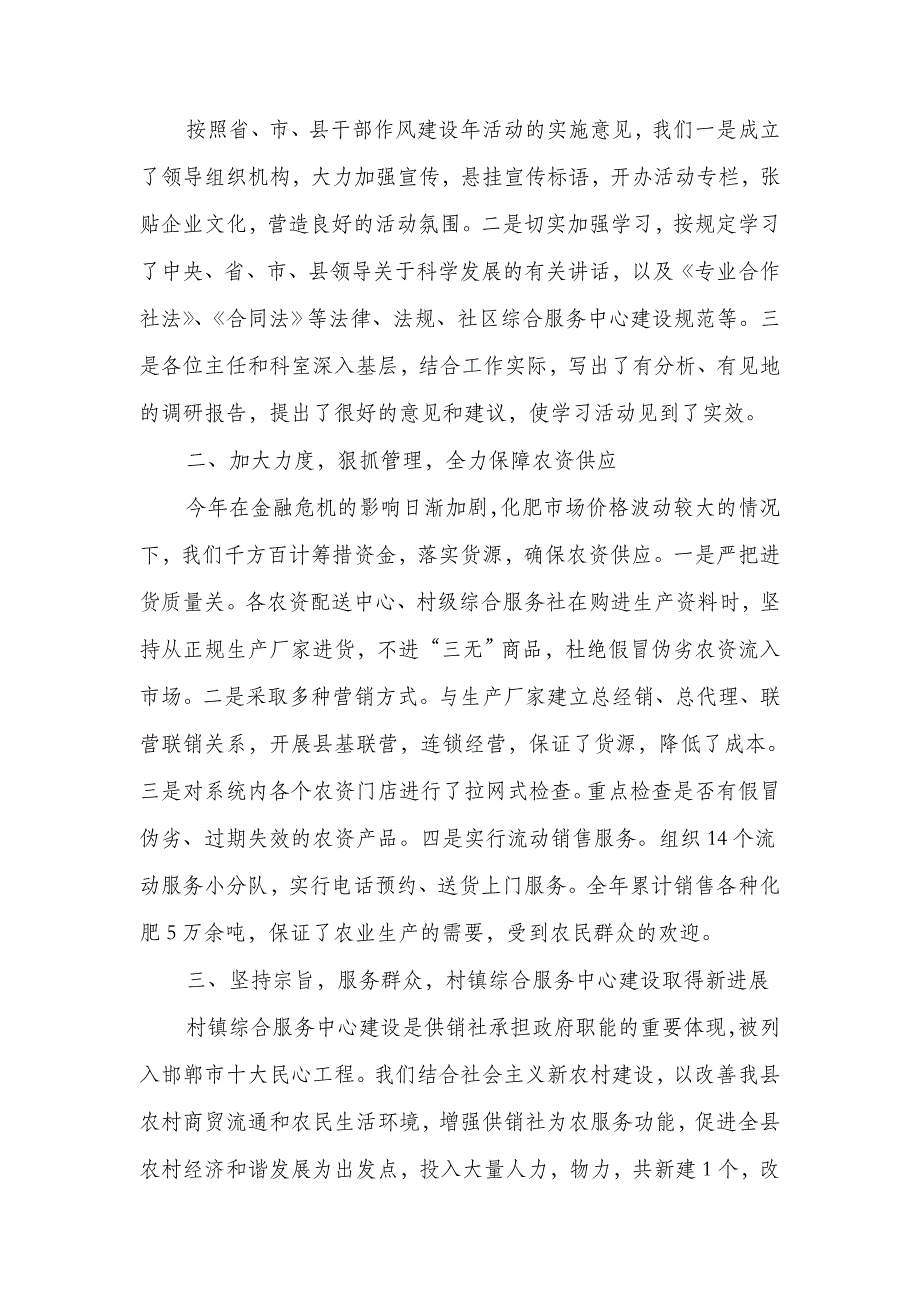 按照省、市、县干部作风建设年活动的实施意见，我们一是成立
了领导组织机构，大力加强宣传，悬挂宣传标语，开办活动专栏，张
贴企业文化，营造良好的活动氛围。二是切实加强学习，按规定学习
了中央、省、市、县领导关于科学发展的有关讲话，以及《专业合作
社法》、《合同法》等法律、法规、社区综合服务中心建设规范等。三
是各位主任和科室深入基层，结合工作实际，写出了有分析、有见地
的调研报告，提出了很好的意见和建议，使学习活动见到了实效。
二、加大力度，狠抓管理，全力保障农资供应
今年在金融危机的影响日渐加剧，化肥市场价格波动较大的情况
下，我们千方百计筹措资金，落实货源，确保农资供应。一是严把进
货质量关。各农资配送中心、村级综合服务社在购进生产资料时，坚
持从正规生产厂家进货，不进“三无”商品，杜绝假冒伪劣农资流入
市场。二是采取多种营销方式。与生产厂家建立总经销、总代理、联
营联销关系，开展县基联营，连锁经营，保证了货源，降低了成本。
三是对系统内各个农资门店进行了拉网式检查。重点检查是否有假冒
伪劣、过期失效的农资产品。四是实行流动销售服务。组织 14 个流
动服务小分队，实行电话预约、送货上门服务。全年累计销售各种化
肥 5 万余吨，保证了农业生产的需要，受到农民群众的欢迎。
三、坚持宗旨，服务群众，村镇综合服务中心建设取得新进展
村镇综合服务中心建设是供销社承担政府职能的重要体现，被列
入邯郸市十大民心工程。我们结合社会主义新农村建设，以改善我县
农村商贸流通和农民生活环境，增强供销社为农服务功能，促进全县
农村经济和谐发展为出发点，投入大量人力，物力，共新建 1 个，改